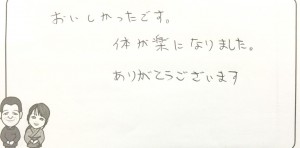 おいしかったです。
体が楽になりました。
ありがとうございます